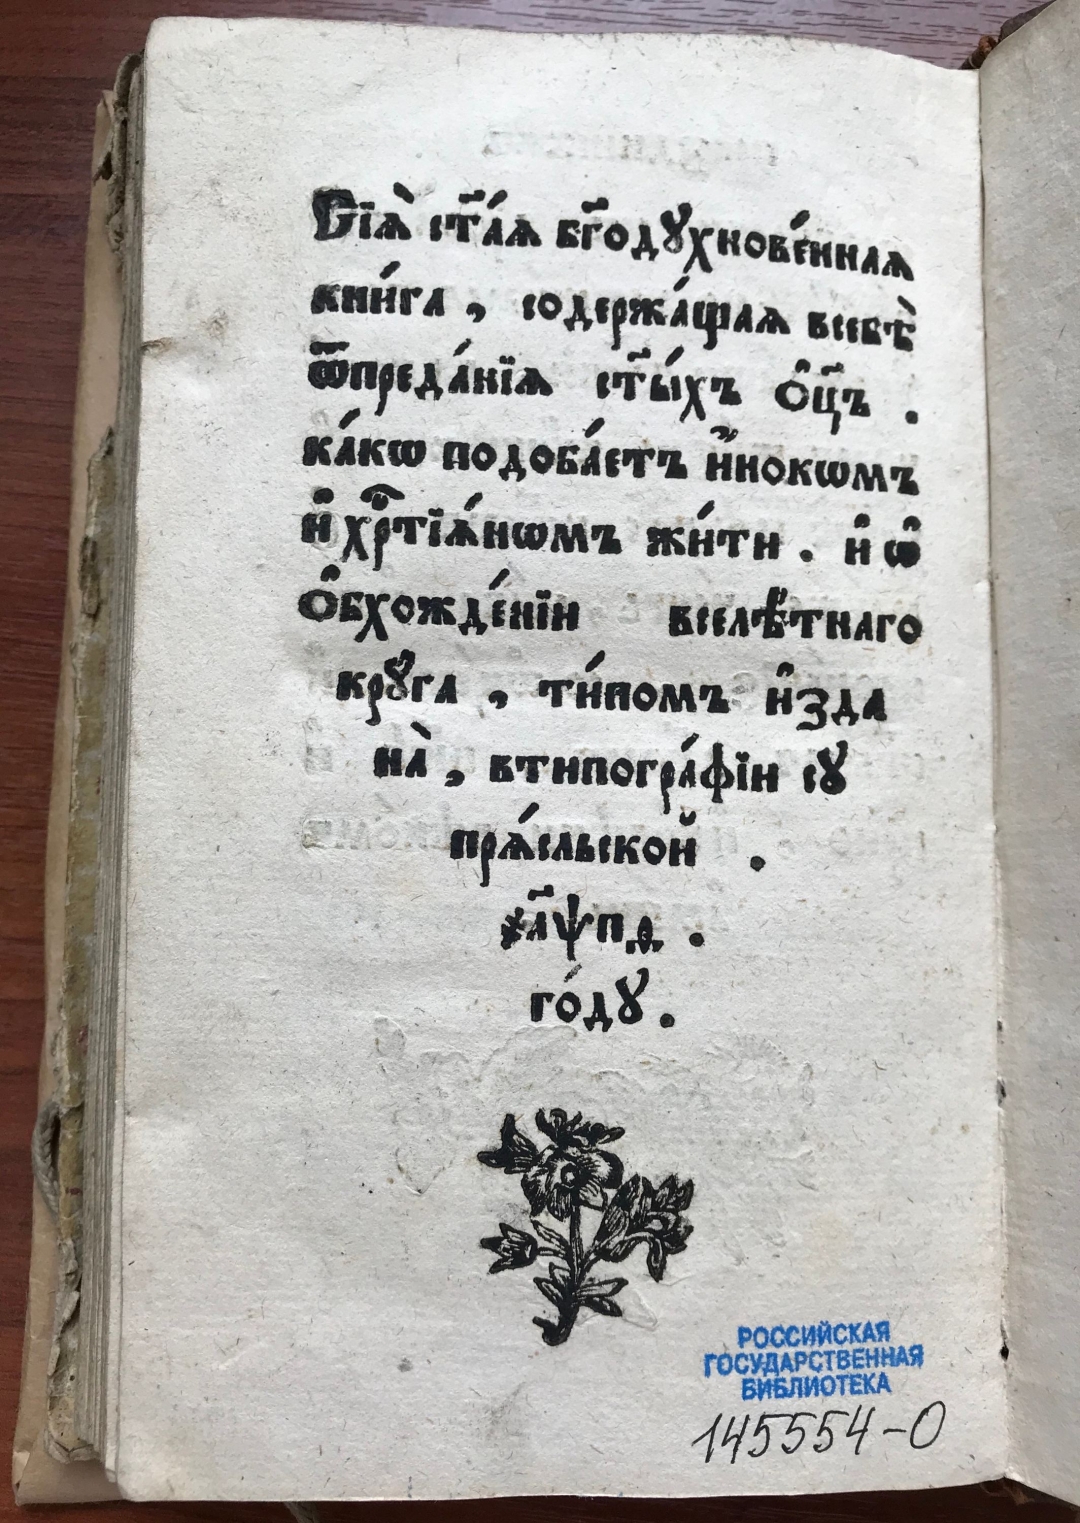 Сїѧ̀ ст҃а́ѧ бг҃одꙋхнове́ннаѧ
кни́га , содержа́щаѧ всебѣ̀
ѿпреда́нїѧ ст҃ы́хъ ѻ҆ц҃ъ .
ка́кѡ подоба́етъ и҆́нокѡмъ
и҆ хрⷭ҇тїѧ́нѡмъ жи́ти . и҆ ѡ҆
ѻ҆бхожде́нїи вселѣ́тнаго
крꙋ́га , ти́помъ и҆зда
на̀ , втипогра́фїи сꙋ
прѧ́сльской .
҂а҃ѱпд .
го́дꙋ .
РОССИЙСКАЯ
ГОСУДАРСТВЕННАЯ
БИБЛИОТЕКА
145554-О